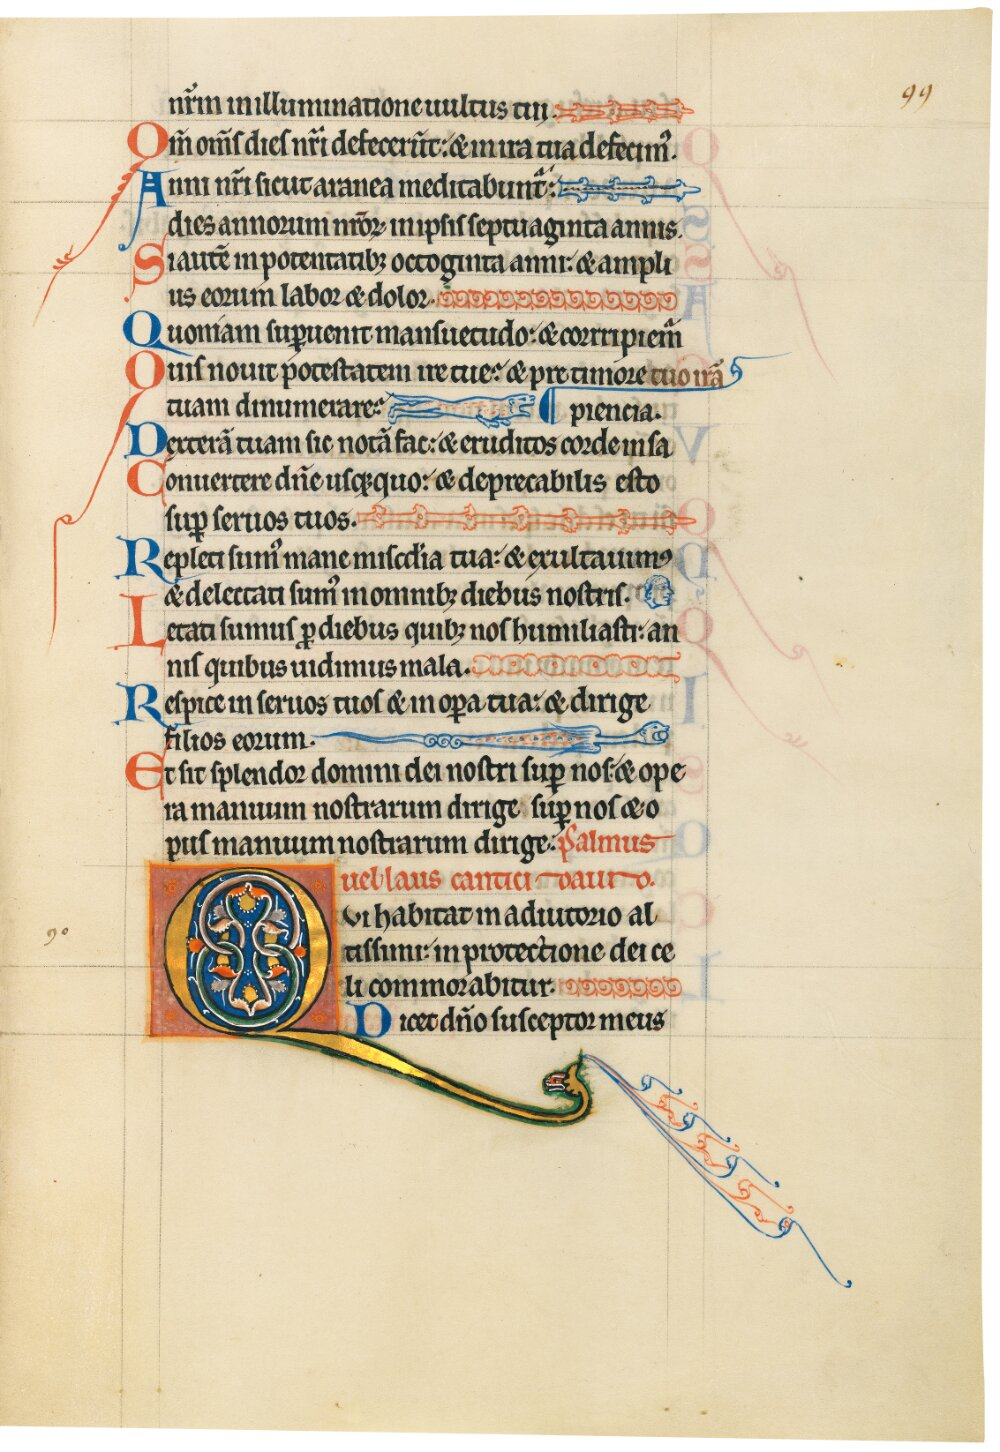 99
nr̄m in illuminatione uultus tui.
Qm̄ om̄s dies nr̄i defecerūt: & in ira tua defecim᷒.
Anni nr̄i sicut aranea meditabunt᷑:
dies annorum nr̄oꝝ in ipsis septuaginta annis.
Si autē in potentatibꝫ octoginta anni: & ampli
us eorum labor & dolor.
Quoniam sup̱uenit mansuetudo: & corripiem᷒
Quis nouit potestatem ire tue: & pre timore tuo irā
tuam dinumerare: piencia.
Dexterā tuam sic notā fac: & eruditos corde in sa
Conuertere dn̄e usqꝫquo: & deprecabilis esto
sup̱ seruos tuos.
Repleti sum᷒ mane miscd̄ia tua: & exultauimꝰ
& delectati sum᷒ in omnibꝫ diebus nostris.
Letati sumus p̱ diebus quibꝫ nos humiliasti: an
nis quibus uidimus mala.
Respice in seruos tuos & in op̱a tua: & dirige
filios eorum.
Et sit splendor domini dei nostri sup̱ nos: & ope
ra manuum nostrarum dirige sup̱ nos & o
pus manuum nostrarum dirige. Psalmus
ueblaus cantici dauid.
Qvi habitat in adiutorio al
90
tissimi: in protectione dei ce
li commorabitur.
Dicet dn̄o susceptor meus